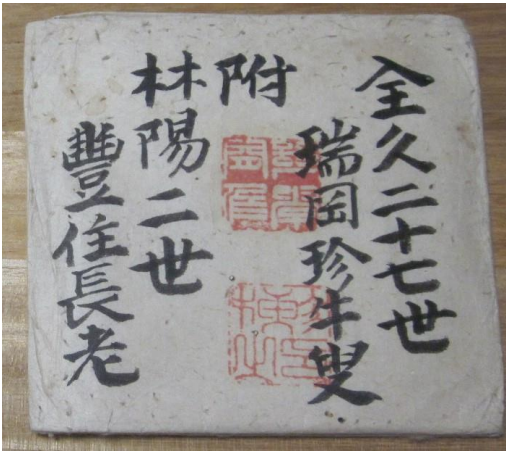 全久二十七世
瑞岡珍牛叟
附
林陽二世
豐住長老